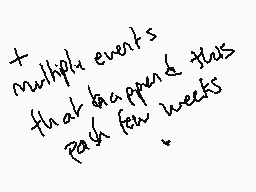 +
multiple events
that happened this
pash few weeks